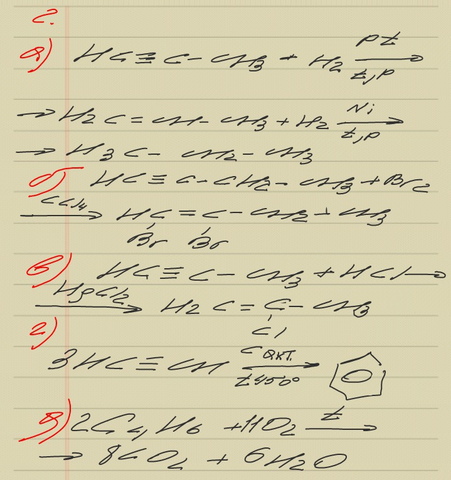 2.
а) HC≡C-CH3 + H2 Pt t,p →
→ H2C=CH-CH3+H2 Ni t,p →
→ H3C-CH2-CH3
б) HC≡C-CH2-CH3+Br2
CCl4 → HC=C-CH2-CH3
Br Br
в) HC≡C-CH3+HCl →
HgCl2 → H2C=C-CH3
Cl
г) 3HC≡CH C акт. t450° →
д) 2C4H6 +11O2 t →
→ 8CO2 + 6H2O